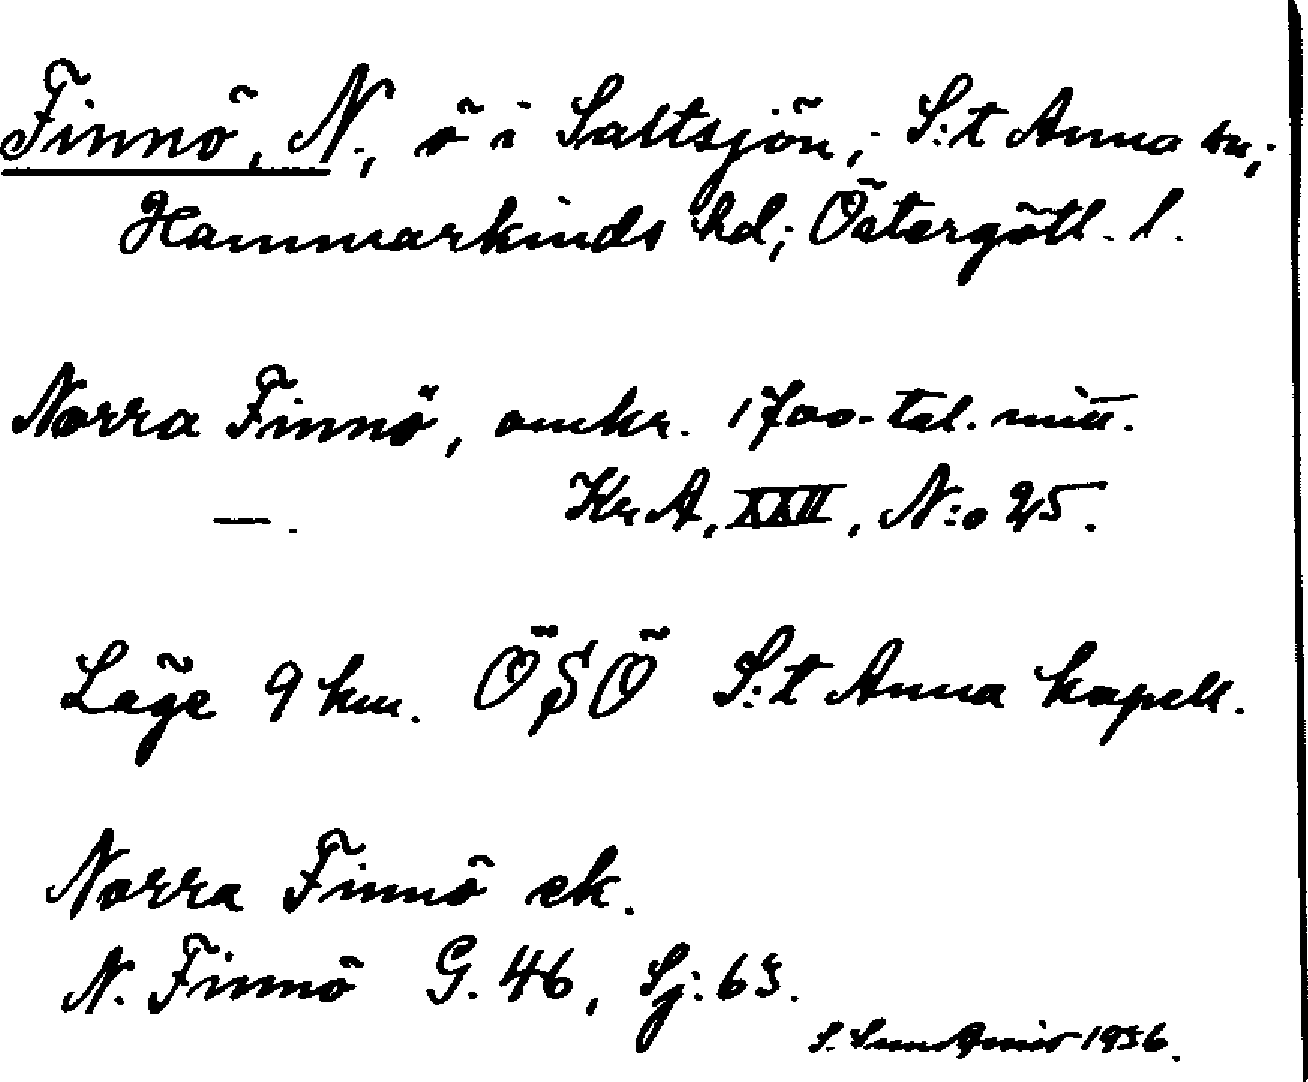 Finnö, N., ö i Saltsjön; S:t Anna sn;
Hammarkinds hd; Östergötl. l.
Norra Finnö, omkr. 1700-tal. mitt.
—. KrA, XXII, N:o 25.
Läge 9 km. ÖSÖ S:t Anna kapell.
Norra Finnö ek.
N. Finnö G. 46, Sj: 63.
S. 1936.